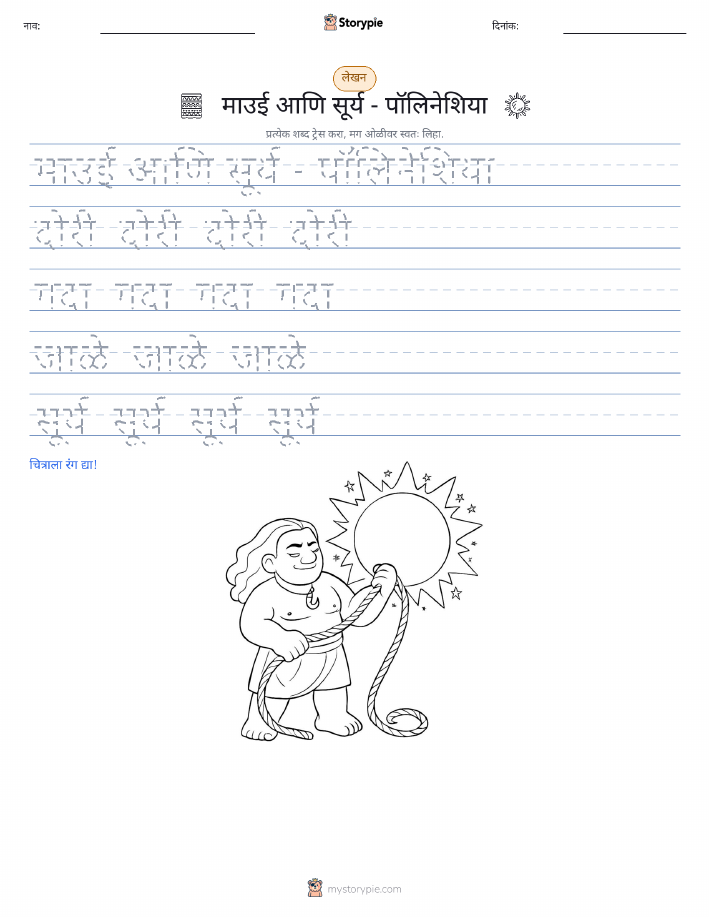 नाव:
Storypie
दिनांक:
लेखन
माउई आणि सूर्य - पॉलिनेशिया
प्रत्येक शब्द ट्रेस करा, मग ओळीवर स्वतः लिहा.
माउई आणि सूर्य - पॉलिनेशिया
दोरी दोरी दोरी दोरी
गदा गदा गदा गदा
जाळे जाळे जाळे
सूर्य सूर्य सूर्य सूर्य
चित्राला रंग द्या!
mystorypie.com